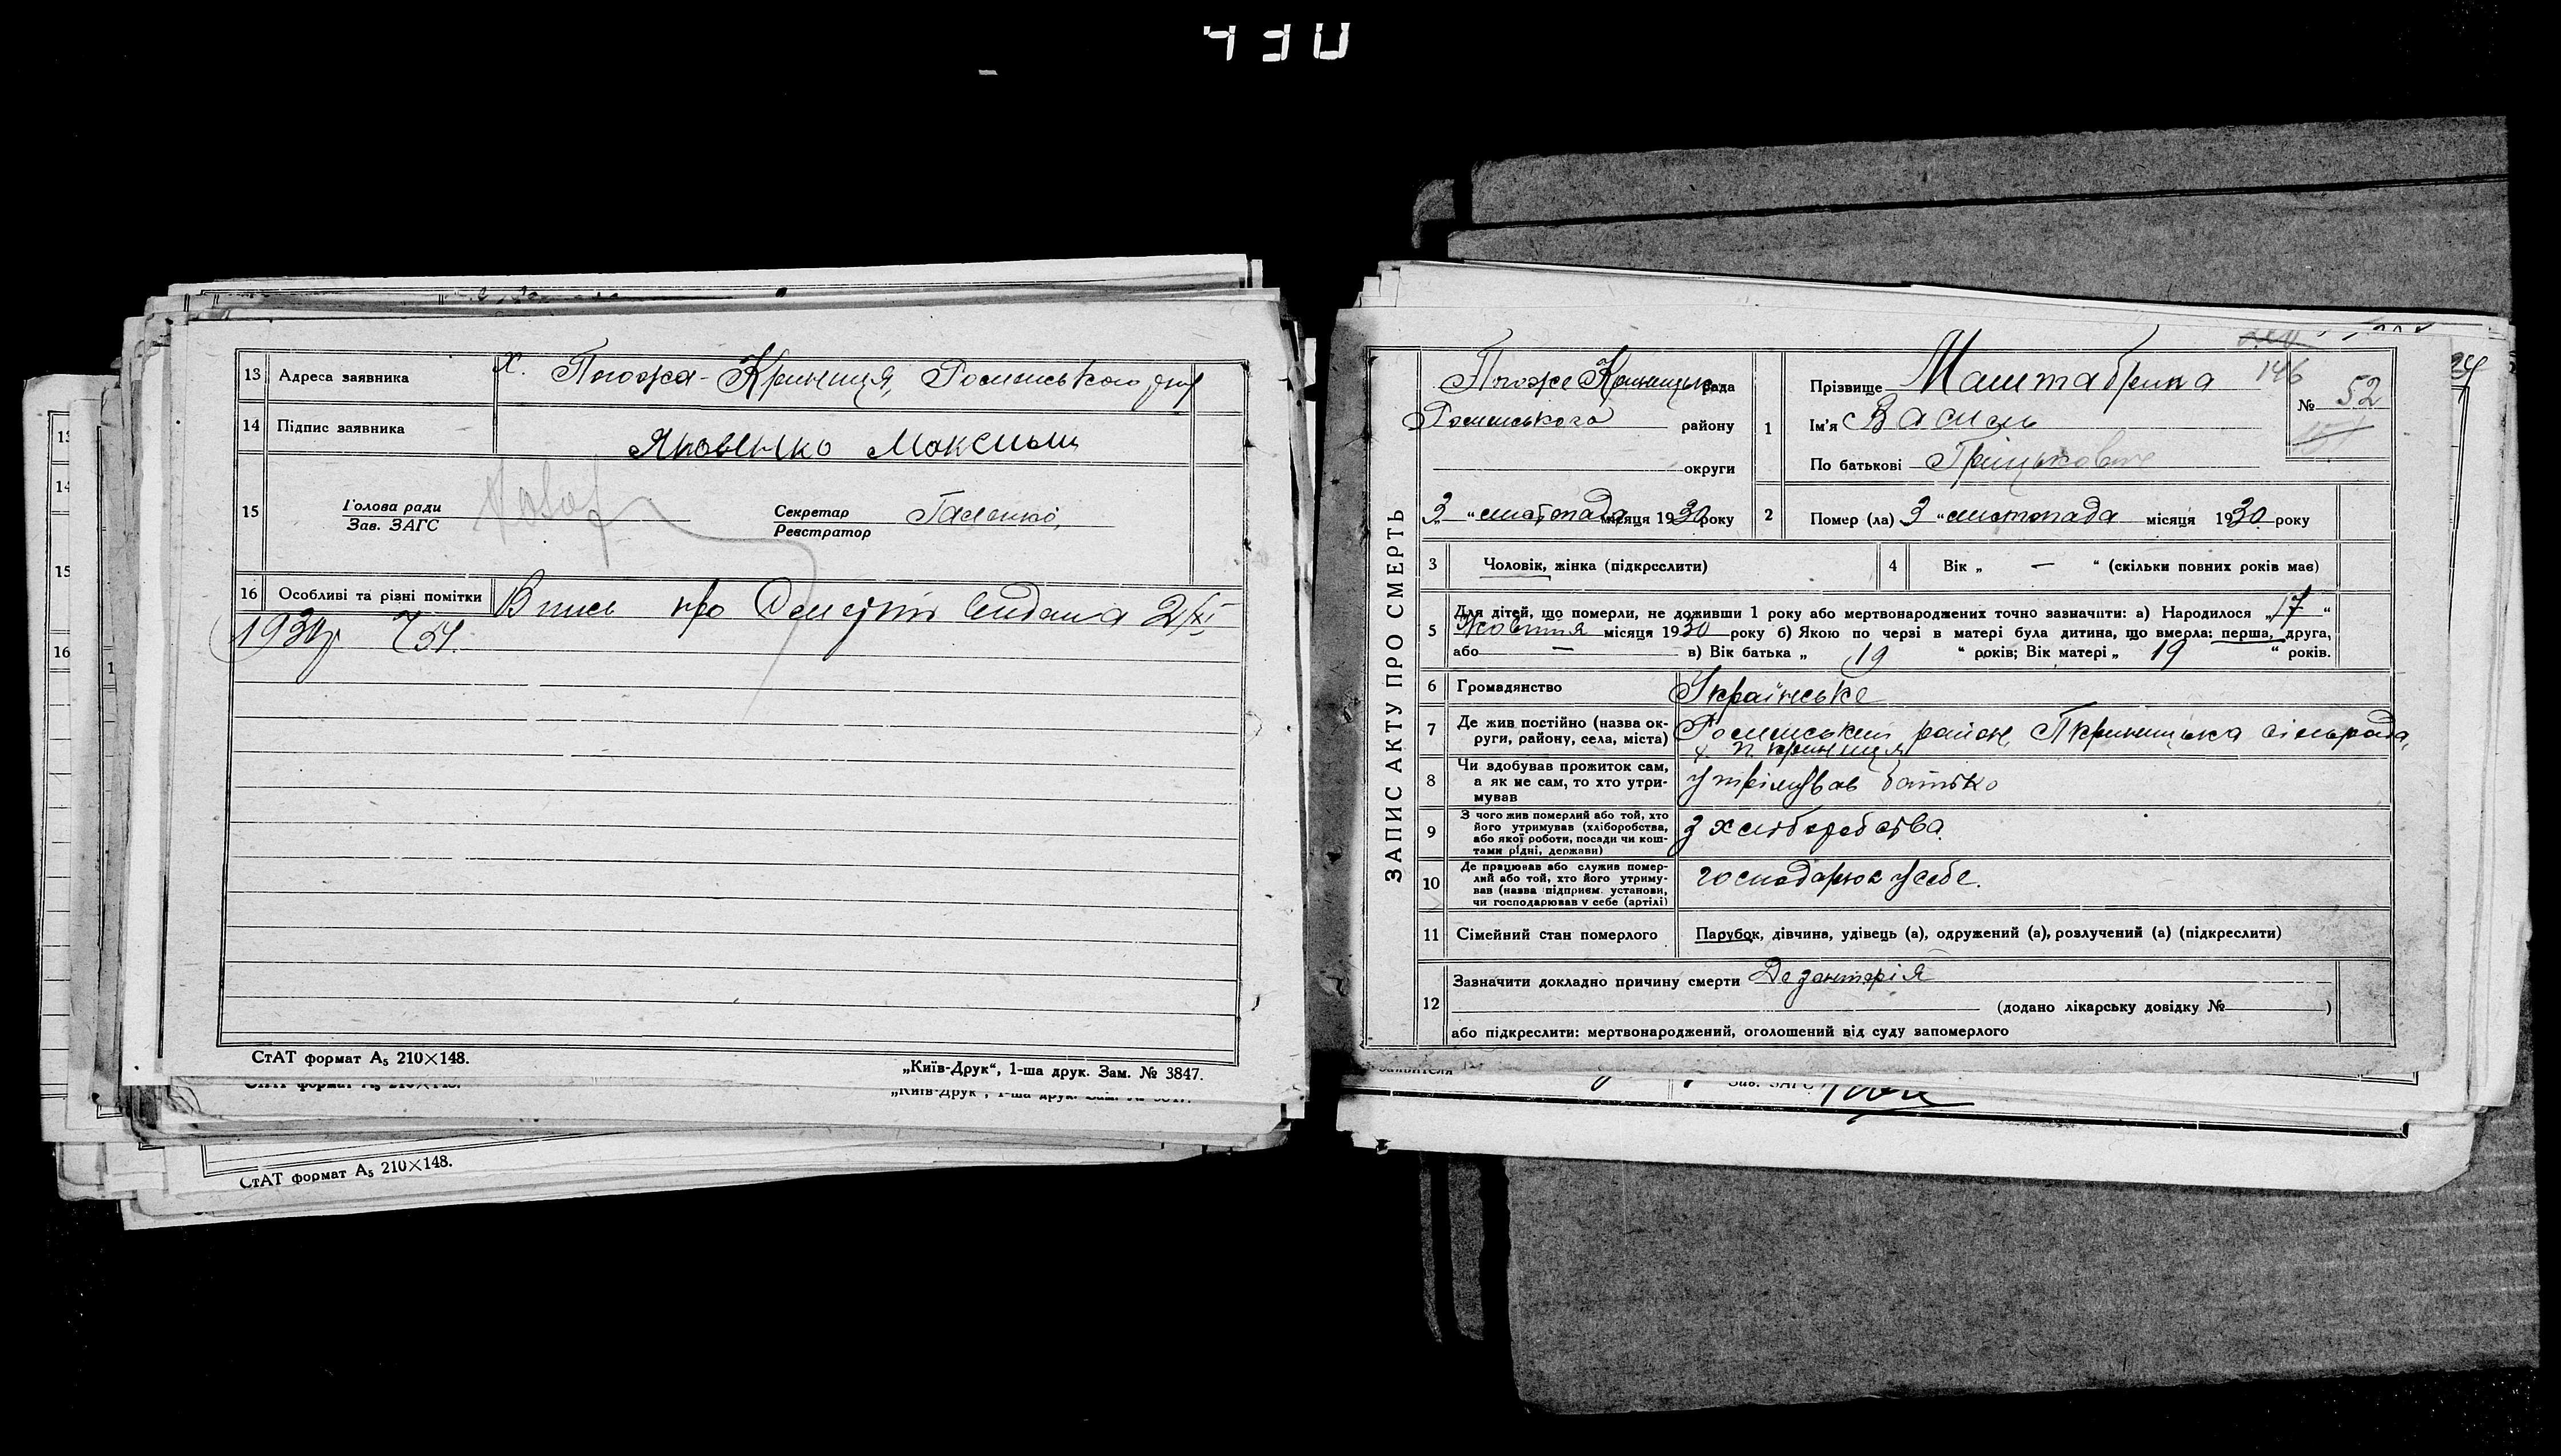 430
13 Адреса заявника х. Погожа-Криниця, Роменського р-ну
14 Підпис заявника
Яковенко Максим
15 Голова ради
Зав. ЗАГС
Секретар
Реєстратор
Галенко
16 Особливі та різні помітки Впись про Смерть видана 2/XI
1930р № 54.
СтАТ формат А₅ 210×148.
„Київ-Друк“, 1-ша друк. Зам. № 3847.
СтАТ формат А₅ 210×148.
ЗАПИС АКТУ ПРО СМЕРТЬ
Погоже Криницька рада
Роменського району
округи
3 “ листопада місяця 1930 року
1 Прізвище Маштабрина
146
№ 52
Ім'я Василь
По батькові Грицькович
2 Помер (ла) 3 “ листопада місяця 1930 року
3 Чоловік, жінка (підкреслити)
4 Вік „ — “ (скільки повних років має)
5 Для дітей, що померли, не доживши 1 року або мертвонароджених точно зазначити: а) Народилося „17“
Жовтня місяця 1930 року б) Якою по черзі в матері була дитина, що вмерла: перша, друга,
або — в) Вік батька „ 19 “ років; Вік матері „ 19 “ років.
6 Громадянство Українське
7 Де жив постійно (назва ок-
руги, району, села, міста) Роменський район, Пкриницька сільрада,
х. П криниця
8 Чи здобував прожиток сам,
а як не сам, то хто утри-
мував
утрімував батько
9 З чого жив померлий або той, хто
його утримував (хліборобства,
або якої роботи, посади чи кош-
тами рідні, держави)
з хліборобства
10 Де працював або служив помер-
лий або той, хто його утриму-
вав (назва підприєм. установи,
чи господарював у себе (артілі)
господарює у себе.
11 Сімейний стан померлого Парубок, дівчина, удівець (а), одружений (а), розлучений (а) (підкреслити)
12 Зазначити докладно причину смерти Дезантерія
(додано лікарську довідку № )
або підкреслити: мертвонароджений, оголошений від суду запомерлого